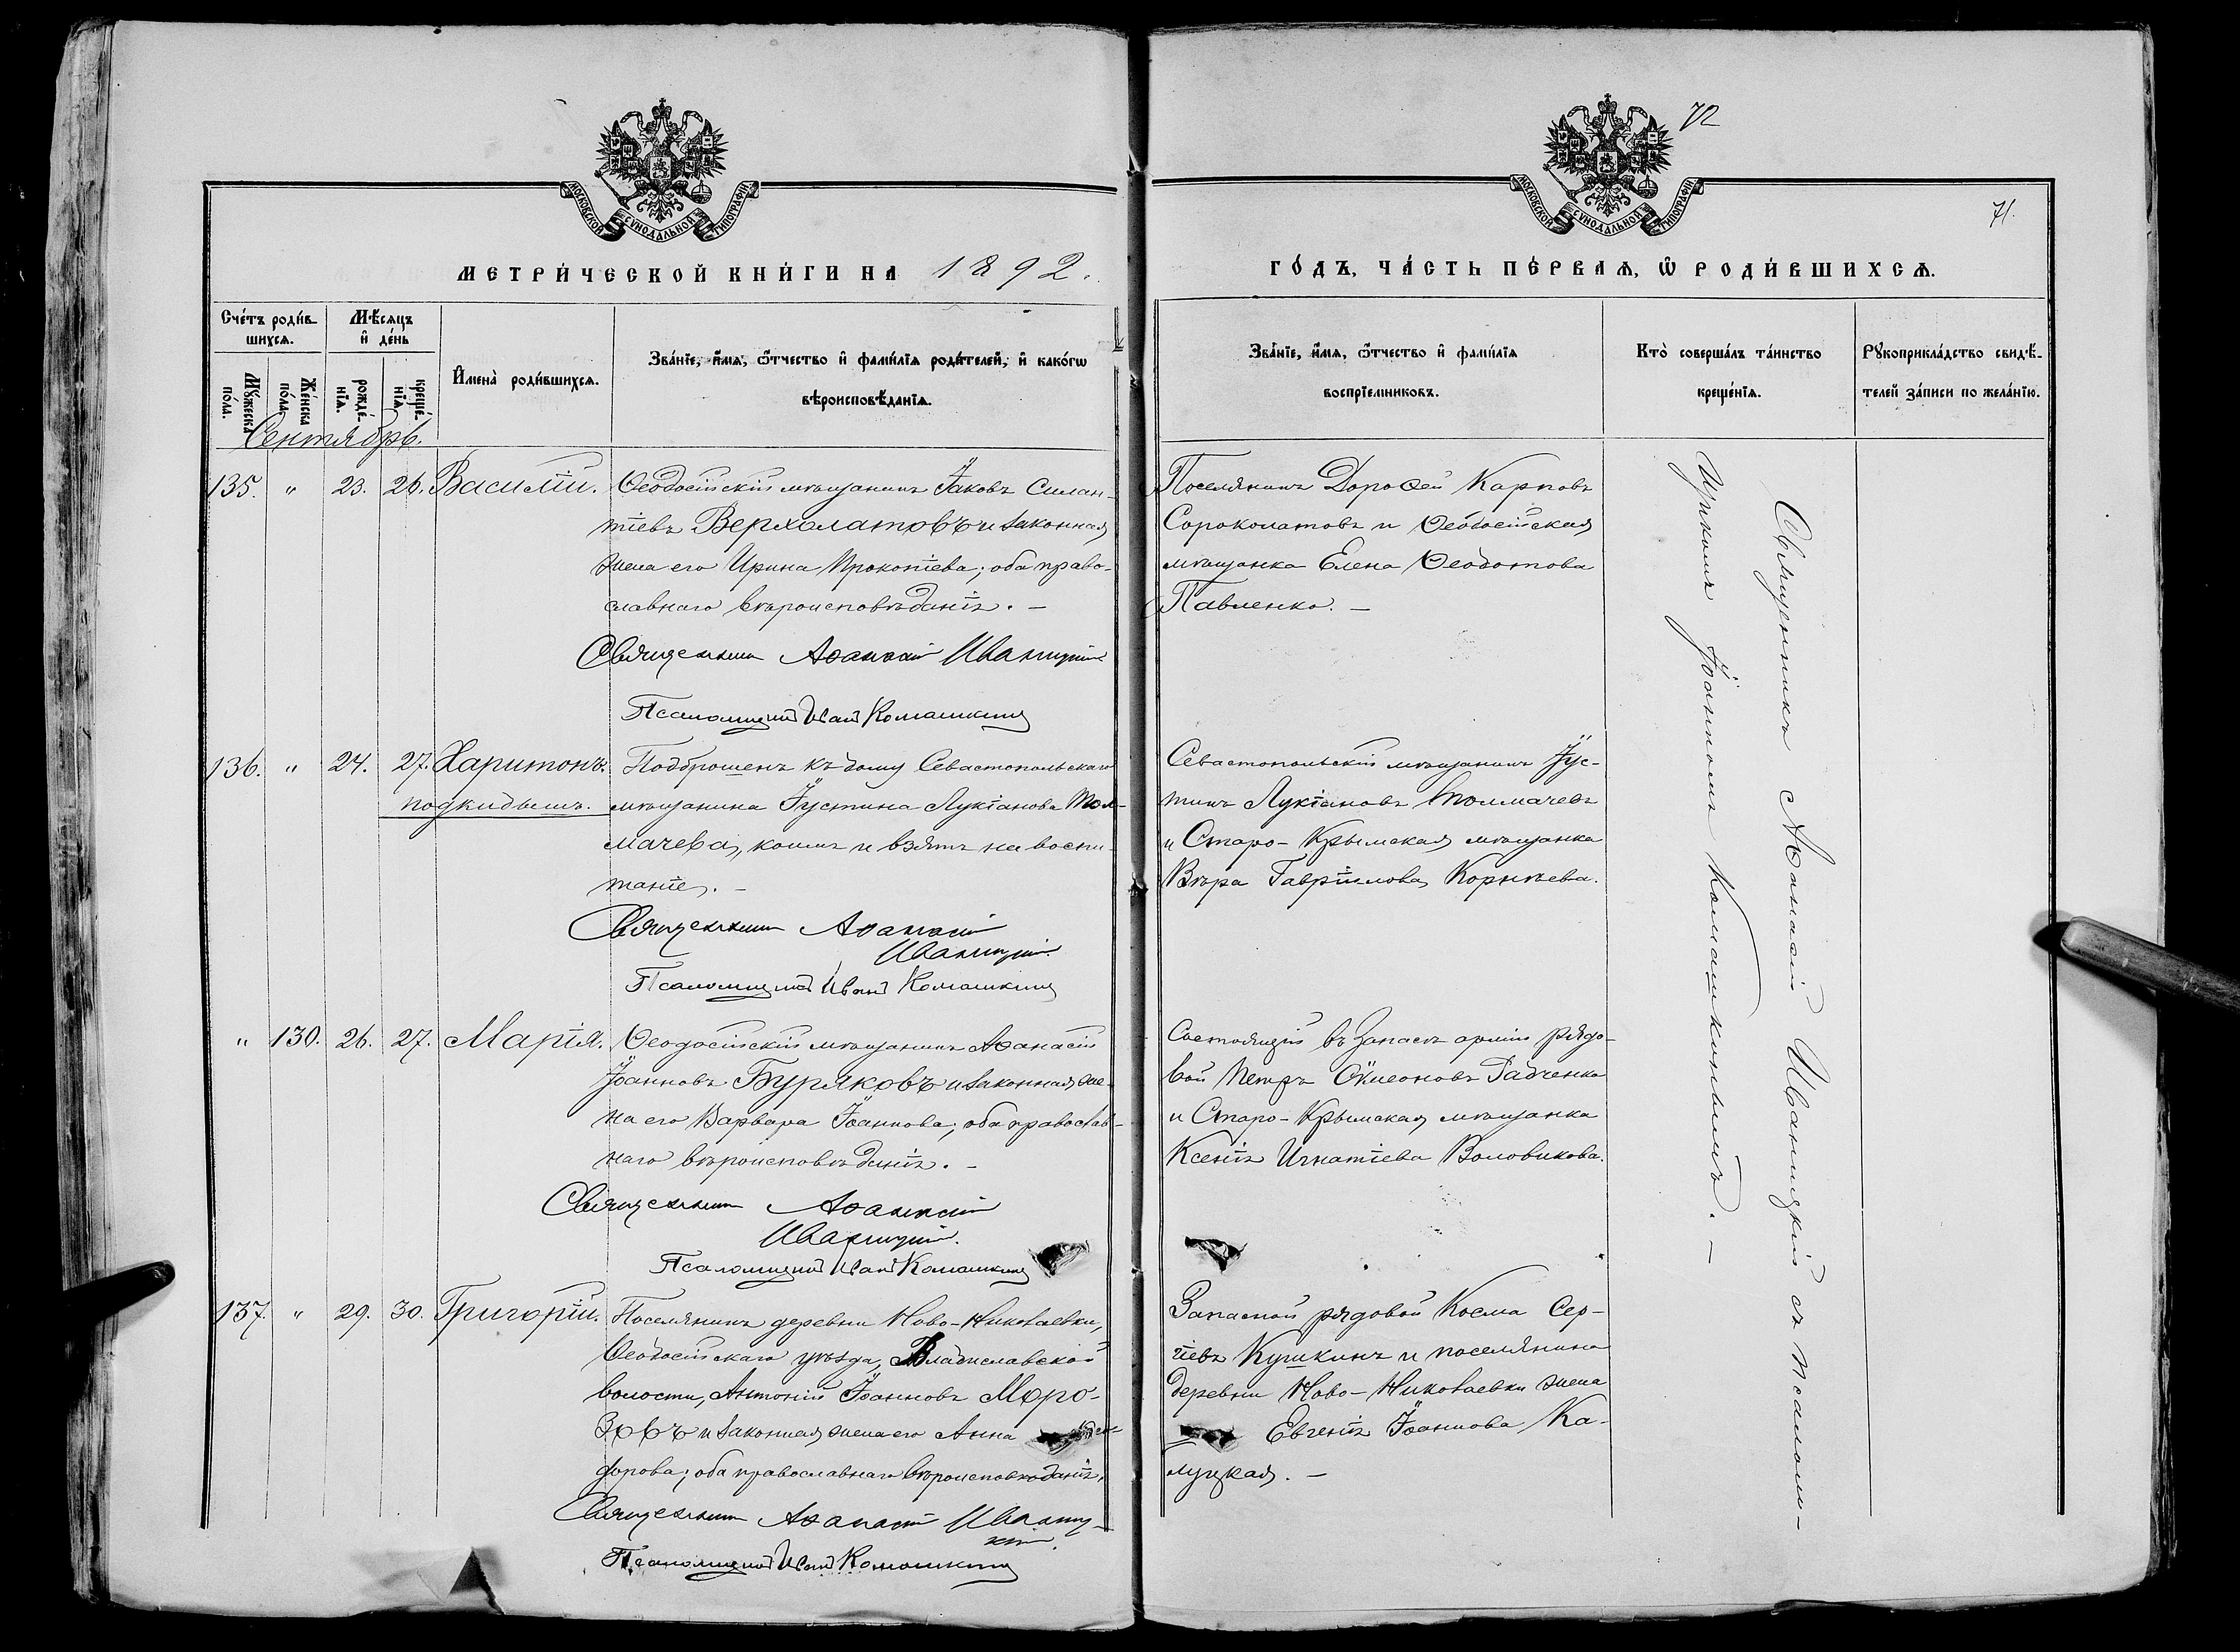 72
71.
МОСКОВСКОЙ СѴНОДАЛЬНОЙ ТИПОГРАФІИ
МОСКОВСКОЙ СѴНОДАЛЬНОЙ ТИПОГРАФІИ
МЕТРИ́ЧЕСКОЙ КНИ́ГИ НА 1892.
ГО́ДЪ, ЧА́СТЬ ПЕ́РВАЯ, Ѽ РОДИ́ВШИХСЯ.
Сче́тъ роди́в-
шихся.
Мѣ́сяцъ
и де́нь
Имена̀ роди́вшихся.
Зва́нїе, и́мя, ѻ҆́тчество и фами́лїя роди́телей, и како́гѡ
вѣроисповѣ́данїя.
Мꙋ́жеска
по́ла.
Же́нска
по́ла.
рожде́-
нїя.
креще́-
нїя.
Зва́нїе, и́мя, ѻ҆́тчество и фами́лїя
воспрїе́мниковъ.
Кто̀ соверша́лъ та́инство
креще́нїя.
Рꙋкоприкла́дство свидѣ́-
телей за́писи по жела́нїю.
Сентябрь.
135. " 23. 26. Василій. Ѳеодосійскій мѣщанинъ Іаковъ Силан-
тіевъ Верхолатовъ и законная
жена его Ирина Прокопіева; оба право-
славнаго вѣроисповѣданія. —
Священникъ Аѳанасій Иваницкій
Псаломщикъ Иванъ Комашкинъ
Поселянинъ Дороѳей Карповъ
Сороколатовъ и Ѳеодосійская
мѣщанка Елена Ѳеодотова
Павленко. —
136. " 24. 27. Харитонъ. Подброшенъ къ дому Севастопольскаго
подкидышъ. мѣщанина Іустина Лукіанова Тол-
мачева, коимъ и взятъ на воспи-
таніе. —
Священникъ Аѳанасій
Иваницкій.
Псаломщикъ Иванъ Комашкинъ
Севастопольскій мѣщанинъ Іус-
тинъ Лукіановъ Толмачевъ
и Старо-Крымская мѣщанка
Вѣра Гавріилова Корнѣева.
" 130. 26. 27. Марія. Ѳеодосійскій мѣщанинъ Аѳанасій
Іоанновъ Буряковъ и законная же-
на его Варвара Іоаннова; оба православ-
наго вѣроисповѣданія. —
Священникъ Аѳанасій
Иваницкій.
Псаломщикъ Иванъ Комашкинъ
Состоящій въ запасѣ арміи рядо-
вой Петръ Сѵмеоновъ Радченко
и Старо-Крымская мѣщанка
Ксенія Игнатіева Воловикова.
137. " 29. 30. Григорій. Поселянинъ деревни Ново-Николаевки,
Ѳеодосійскаго уѣзда, Владиславской
волости, Антоній Іоанновъ Моро-
зовъ и законная жена его Анна
дорова; оба православнаго вѣроисповѣданія.
Священникъ Аѳанасій Иваниц-
кій.
Псаломщикъ Иванъ Комашкинъ
Запасной рядовой Косма Сер-
гіевъ Кушкинъ и поселянина
деревни Ново-Николаевки жена
Евгенія Іоаннова Ка-
луцкая. —
Священникъ Аѳанасій Иваницкій съ псалом-
щикомъ Іоанномъ Комашкинымъ. —